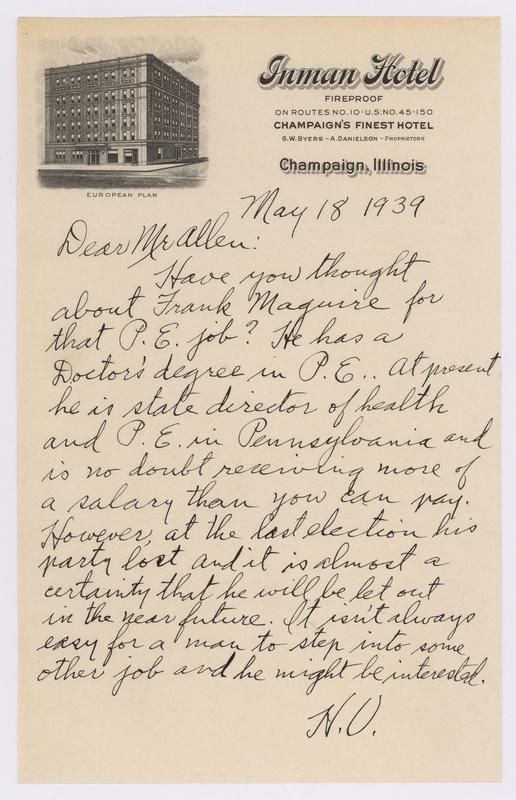 Inman Hotel
FIREPROOF
ON ROUTES NO. 10 - U.S. NO. 45-150
CHAMPAIGN'S FINEST HOTEL
G.W. BYERS - A. DANIELSON - PROPRIETORS
Champaign, Illinois
EUROPEAN PLAN
May 18 1939
Dear Mr Allen:
Have you thought
about Frank Maguire for
that P. E. job? He has a
Doctor's degree in P. E.. At present
he is state director of health
and P. E. in Pennsylvania and
is no doubt receiving more of
a salary than you can pay.
However, at the last election his
party lost and it is almost a
certainty that he will be let out
in the near future. It isn't always
easy for a man to step into some
other job and he might be interested.
H.O.